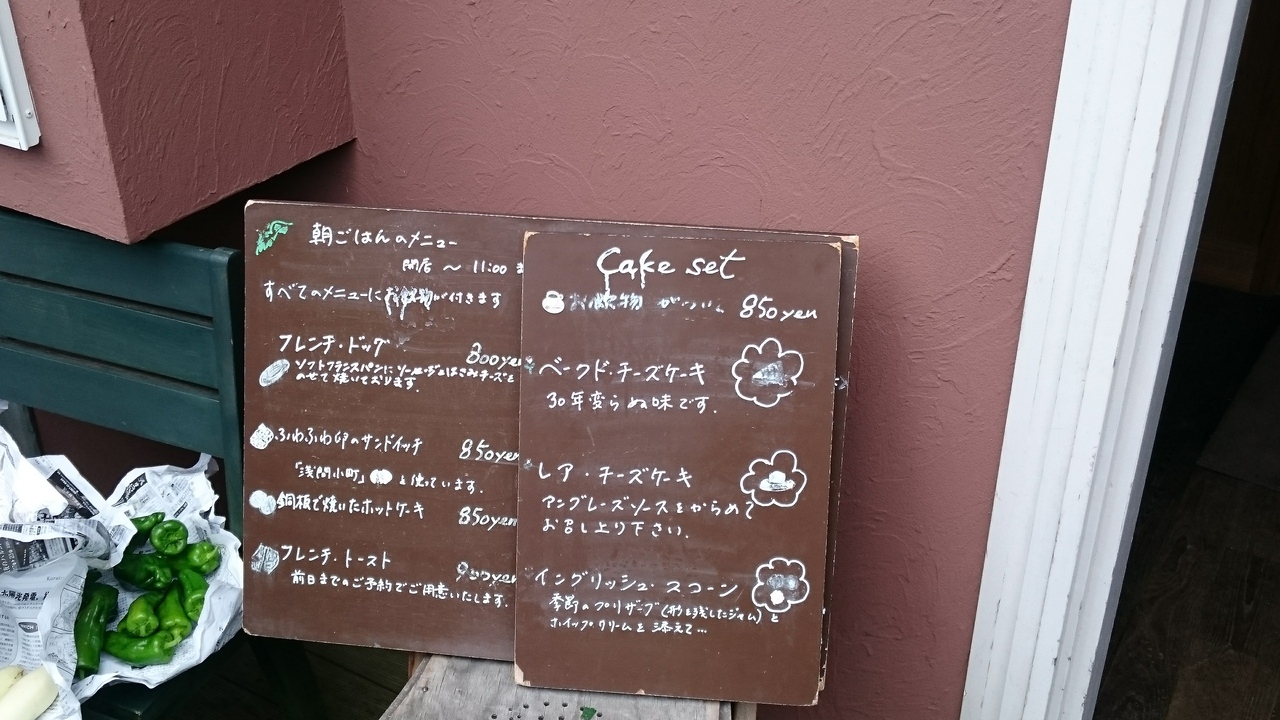 朝ごはんのメニュー
開店 ～ 11:00 ま
すべてのメニューにお飲物が付きます
フレンチ・ドッグ 800yen
ソフトフランスパンにソーセージをはさみチーズを
のせて焼いております。
ふわふわ卵のサンドイッチ 850yen
「浅間小町」 を使っています。
銅板で焼いたホットケーキ 850yen
フレンチ・トースト 900yen
前日までのご予約でご用意いたします。
Cake set
お飲物 がついて 850yen
ベークド・チーズケーキ
30年変らぬ味です.
レア・チーズケーキ
アングレーズソースをからめて
お召し上り下さい.
イングリッシュ・スコーン
季節のプリザーブ(形を残したジャム)と
ホイップクリームを添えて…